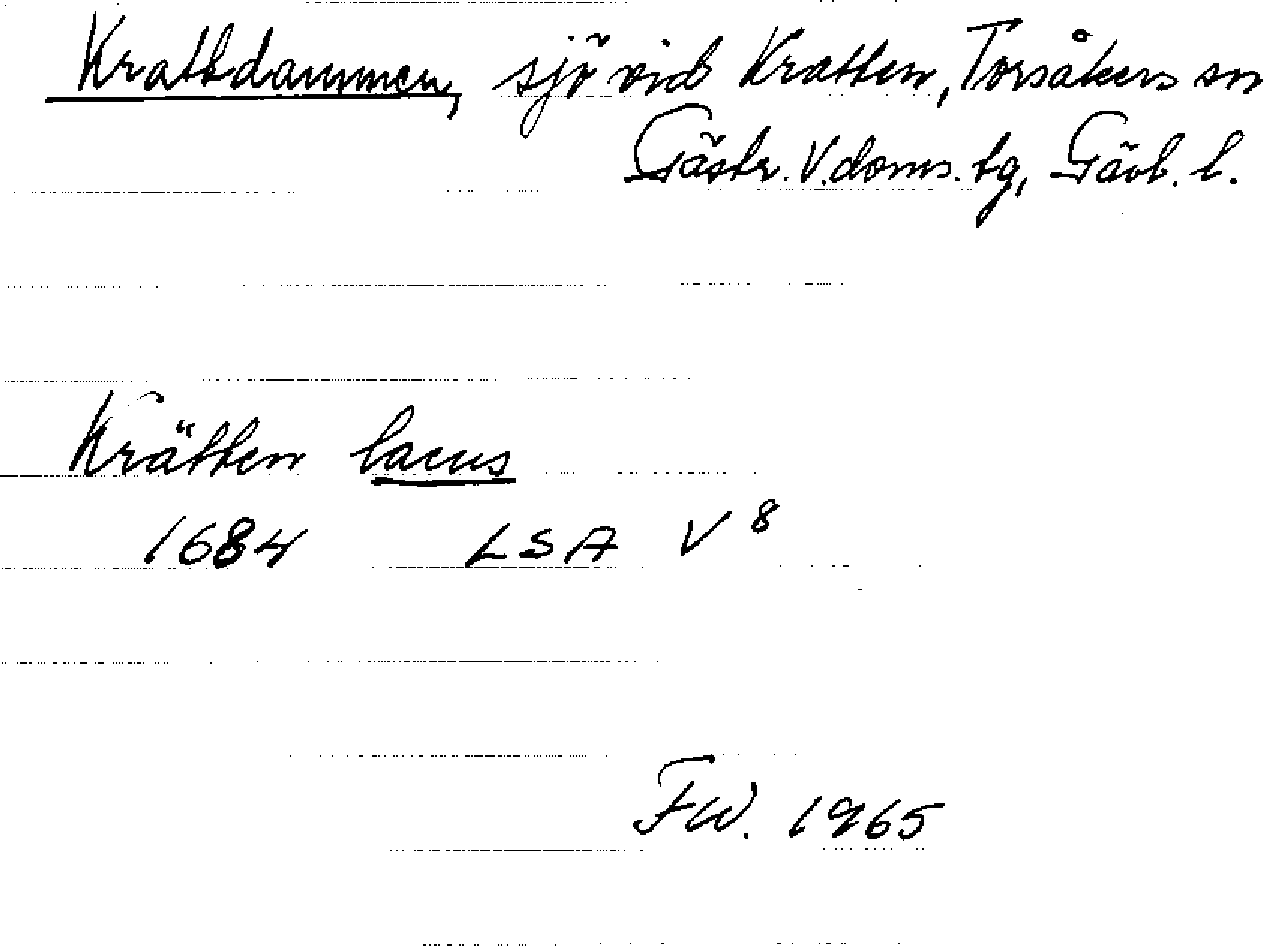 Krattdammen, sjö vid Kratten, Torsåkers sn
Gästr. V. doms. tg, Gävl. l.
Krätten lacus
1684 LSA V 8
FW. 1965